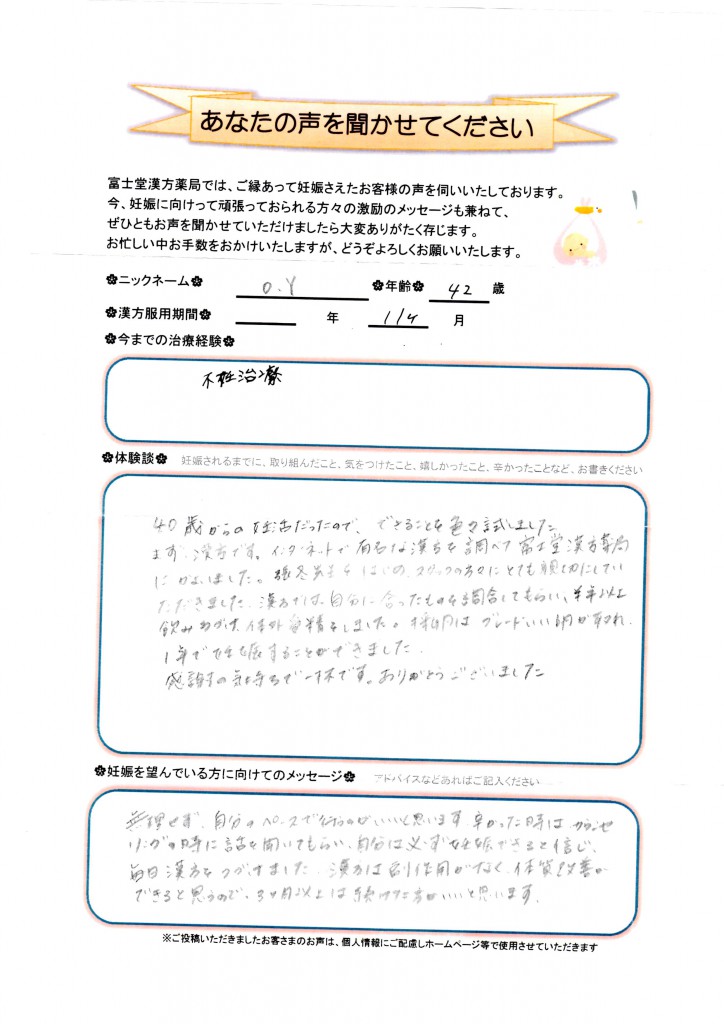 あなたの声を聞かせてください
富士堂漢方薬局では、ご縁あって妊娠さえたお客様の声を伺いいたしております。
今、妊娠に向けって頑張っておられる方々の激励のメッセージも兼ねて、
ぜひともお声を聞かせていただけましたら大変ありがたく存じます。
お忙しい中お手数をおかけいたしますが、どうぞよろしくお願いいたします。
✽ニックネーム✽ O.Y ✽年齢✽ 42 歳
✽漢方服用期間✽ 年 11ヶ 月
✽今までの治療経験✽
不妊治療
✽体験談✽ 妊娠されるまでに、取り組んだこと、気をつけたこと、嬉しかったこと、辛かったことなど、お書きください
40歳からの妊活だったので、できることを色々試しました
まず、漢方です。インターネットで有名な漢方を調べて富士堂漢方薬局
にかよいました。先生をはじめ、スタッフの方々にとても親切にしてい
ただきました。漢方では、自分に合ったものを調合してもらい、半年以上
飲みつづけ、体外受精をしました。採卵はグレードいい卵が取れ、
1年で妊娠することができました。
感謝の気持ちで一杯です。ありがとうございました
✽妊娠を望んでいる方に向けてのメッセージ✽ アドバイスなどあればご記入ください
無理せず、自分のペースで行うのがいいと思います。辛かった時は、カウンセ
リングの時に話を聞いてもらい、自分は必ず妊娠できると信じ、
毎日漢方をつづけました。漢方は副作用がなく、体質改善が
できると思うので、3ヶ月以上は続けた方がいいと思います。
※ご投稿いただきましたお客さまのお声は、個人情報にご配慮しホームページ等で使用させていただきます